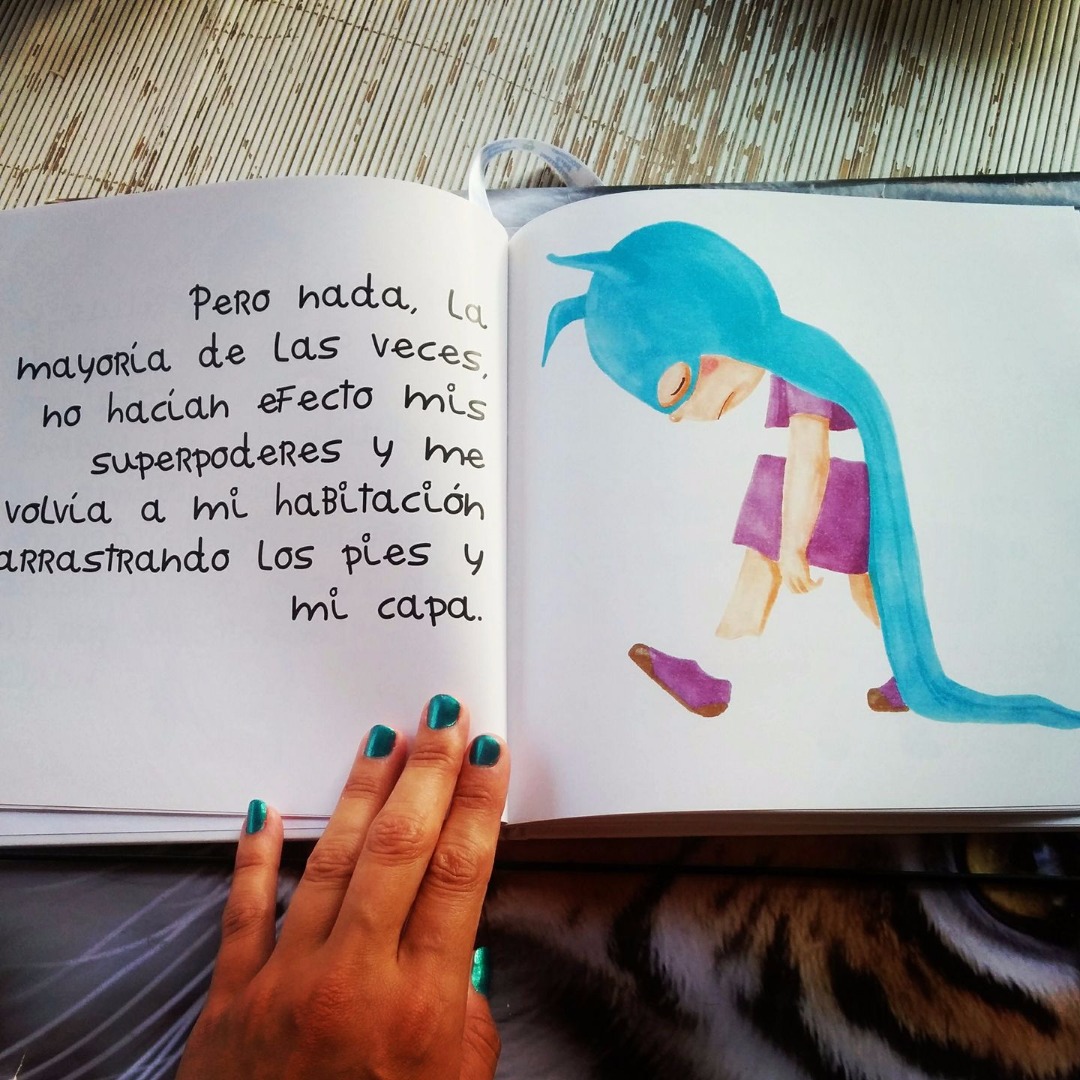 Pero nada, la
mayoría de las veces,
no hacían efecto mis
superpoderes y me
volvía a mi habitación
arrastrando los pies y
mi capa.